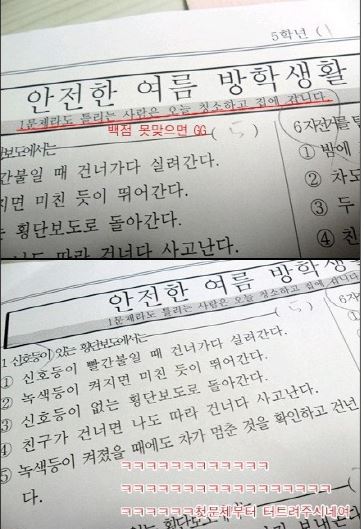 5학년 (
안전한 여름 방학생활
1문제라도 틀리는 사람은 오늘 청소하고 집에 갑니다.
백점 못맞으면 GG
( 5 )
횡단보도에서는
6 자전거를 탈
빨간불일 때 건너가다 실려간다.
① 밤에
켜지면 미친 듯이 뛰어간다.
② 차도
는 횡단보도로 돌아간다.
③ 두
나도 따라 건너다 사고난다.
④ 친
안전한 여름 방학생활
1문제라도 틀리는 사람은 오늘 청소하고 집에 갑니다.
1 신호등이 있는 횡단보도에서는
( 5 )
6 자전
① 신호등이 빨간불일 때 건너가다 실려간다.
①
② 녹색등이 켜지면 미친 듯이 뛰어간다.
②
③ 신호등이 없는 횡단보도로 돌아간다.
③
④ 친구가 건너면 나도 따라 건너다 사고난다.
④
⑤ 녹색등이 켜졌을 때에도 차가 멈춘 것을 확인하고 건넌
다.
ㅋㅋㅋㅋㅋㅋㅋㅋㅋㅋㅋㅋㅋ
ㅋㅋㅋㅋㅋㅋㅋㅋㅋㅋㅋㅋㅋㅋㅋㅋㅋ
ㅋㅋㅋㅋㅋㅋㅋ첫문제부터 터트려주시네여
이 없는 횡단보도에서는